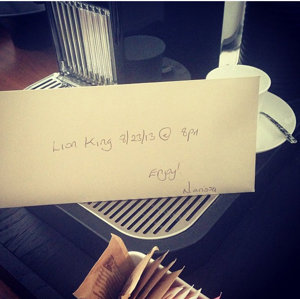 Lion King 8/23/13 @ 8pm
Enjoy!